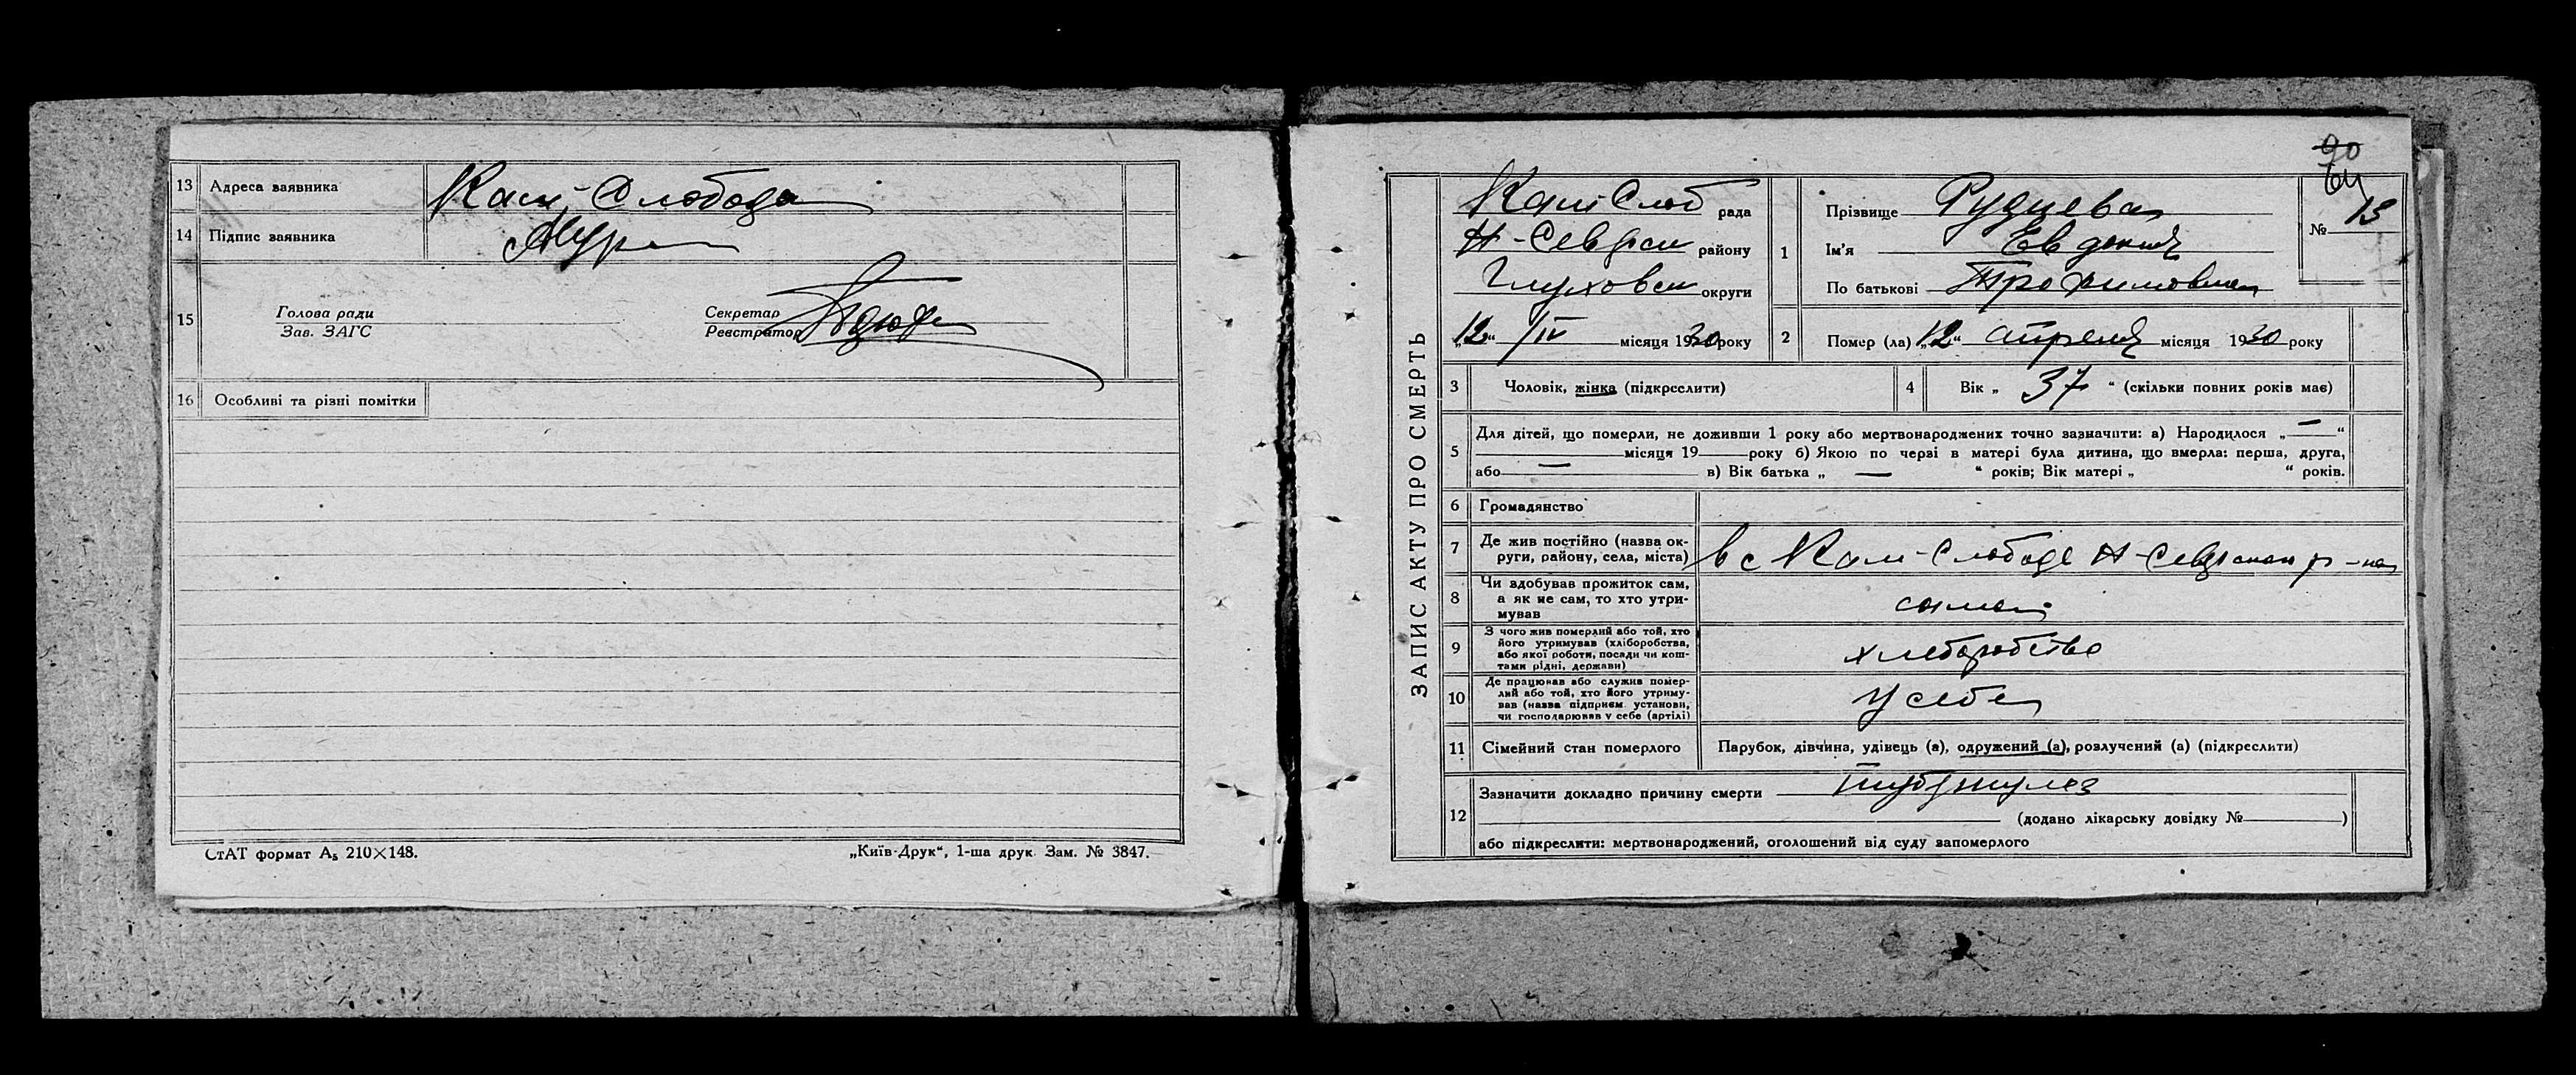 13 Адреса заявника Кам-Слобода
14 Підпис заявника
15 Голова ради
Зав. ЗАГС
Секретар
Реєстратор
16 Особливі та різні помітки
СтАТ формат А₅ 210×148.
„Київ-Друк“, 1-ша друк. Зам. № 3847.
90
64
ЗАПИС АКТУ ПРО СМЕРТЬ
Кам Слоб рада
Н-Севрск району
Глуховск округи
„12“ /IV місяця 1930 року
1 Прізвище Рудцева
Ім’я Евдокия
По батькові Трохимовна
№ 13
2 Помер (ла) „12“ апреля місяця 1930 року
3 Чоловік, жінка (підкреслити)
4 Вік „ 37 “ (скільки повних років має)
5 Для дітей, що померли, не доживши 1 року або мертвонароджених точно зазначити: а) Народилося „—“
місяця 19 року б) Якою по черзі в матері була дитина, що вмерла: перша, друга,
або — в) Вік батька „ — “ років; Вік матері „ “ років.
6 Громадянство
7 Де жив постійно (назва ок-
руги, району, села, міста) в с Кам-Слободе Н-Севрскаго р-на
8 Чи здобував прожиток сам,
а як не сам, то хто утри-
мував
9 З чого жив померлий або той, хто
його утримував (хліборобства,
або якої роботи, посади чи кош-
тами рідні, держави) хлеборобство
10 Де працював або служив помер-
лий або той, хто його утриму-
вав (назва підприєм. установи,
чи господарював у себе (артілі) У себе
11 Сімейний стан померлого Парубок, дівчина, удівець (а), одружений (а), розлучений (а) (підкреслити)
12 Зазначити докладно причину смерти туберкулез
(додано лікарську довідку № )
або підкреслити: мертвонароджений, оголошений від суду запомерлого